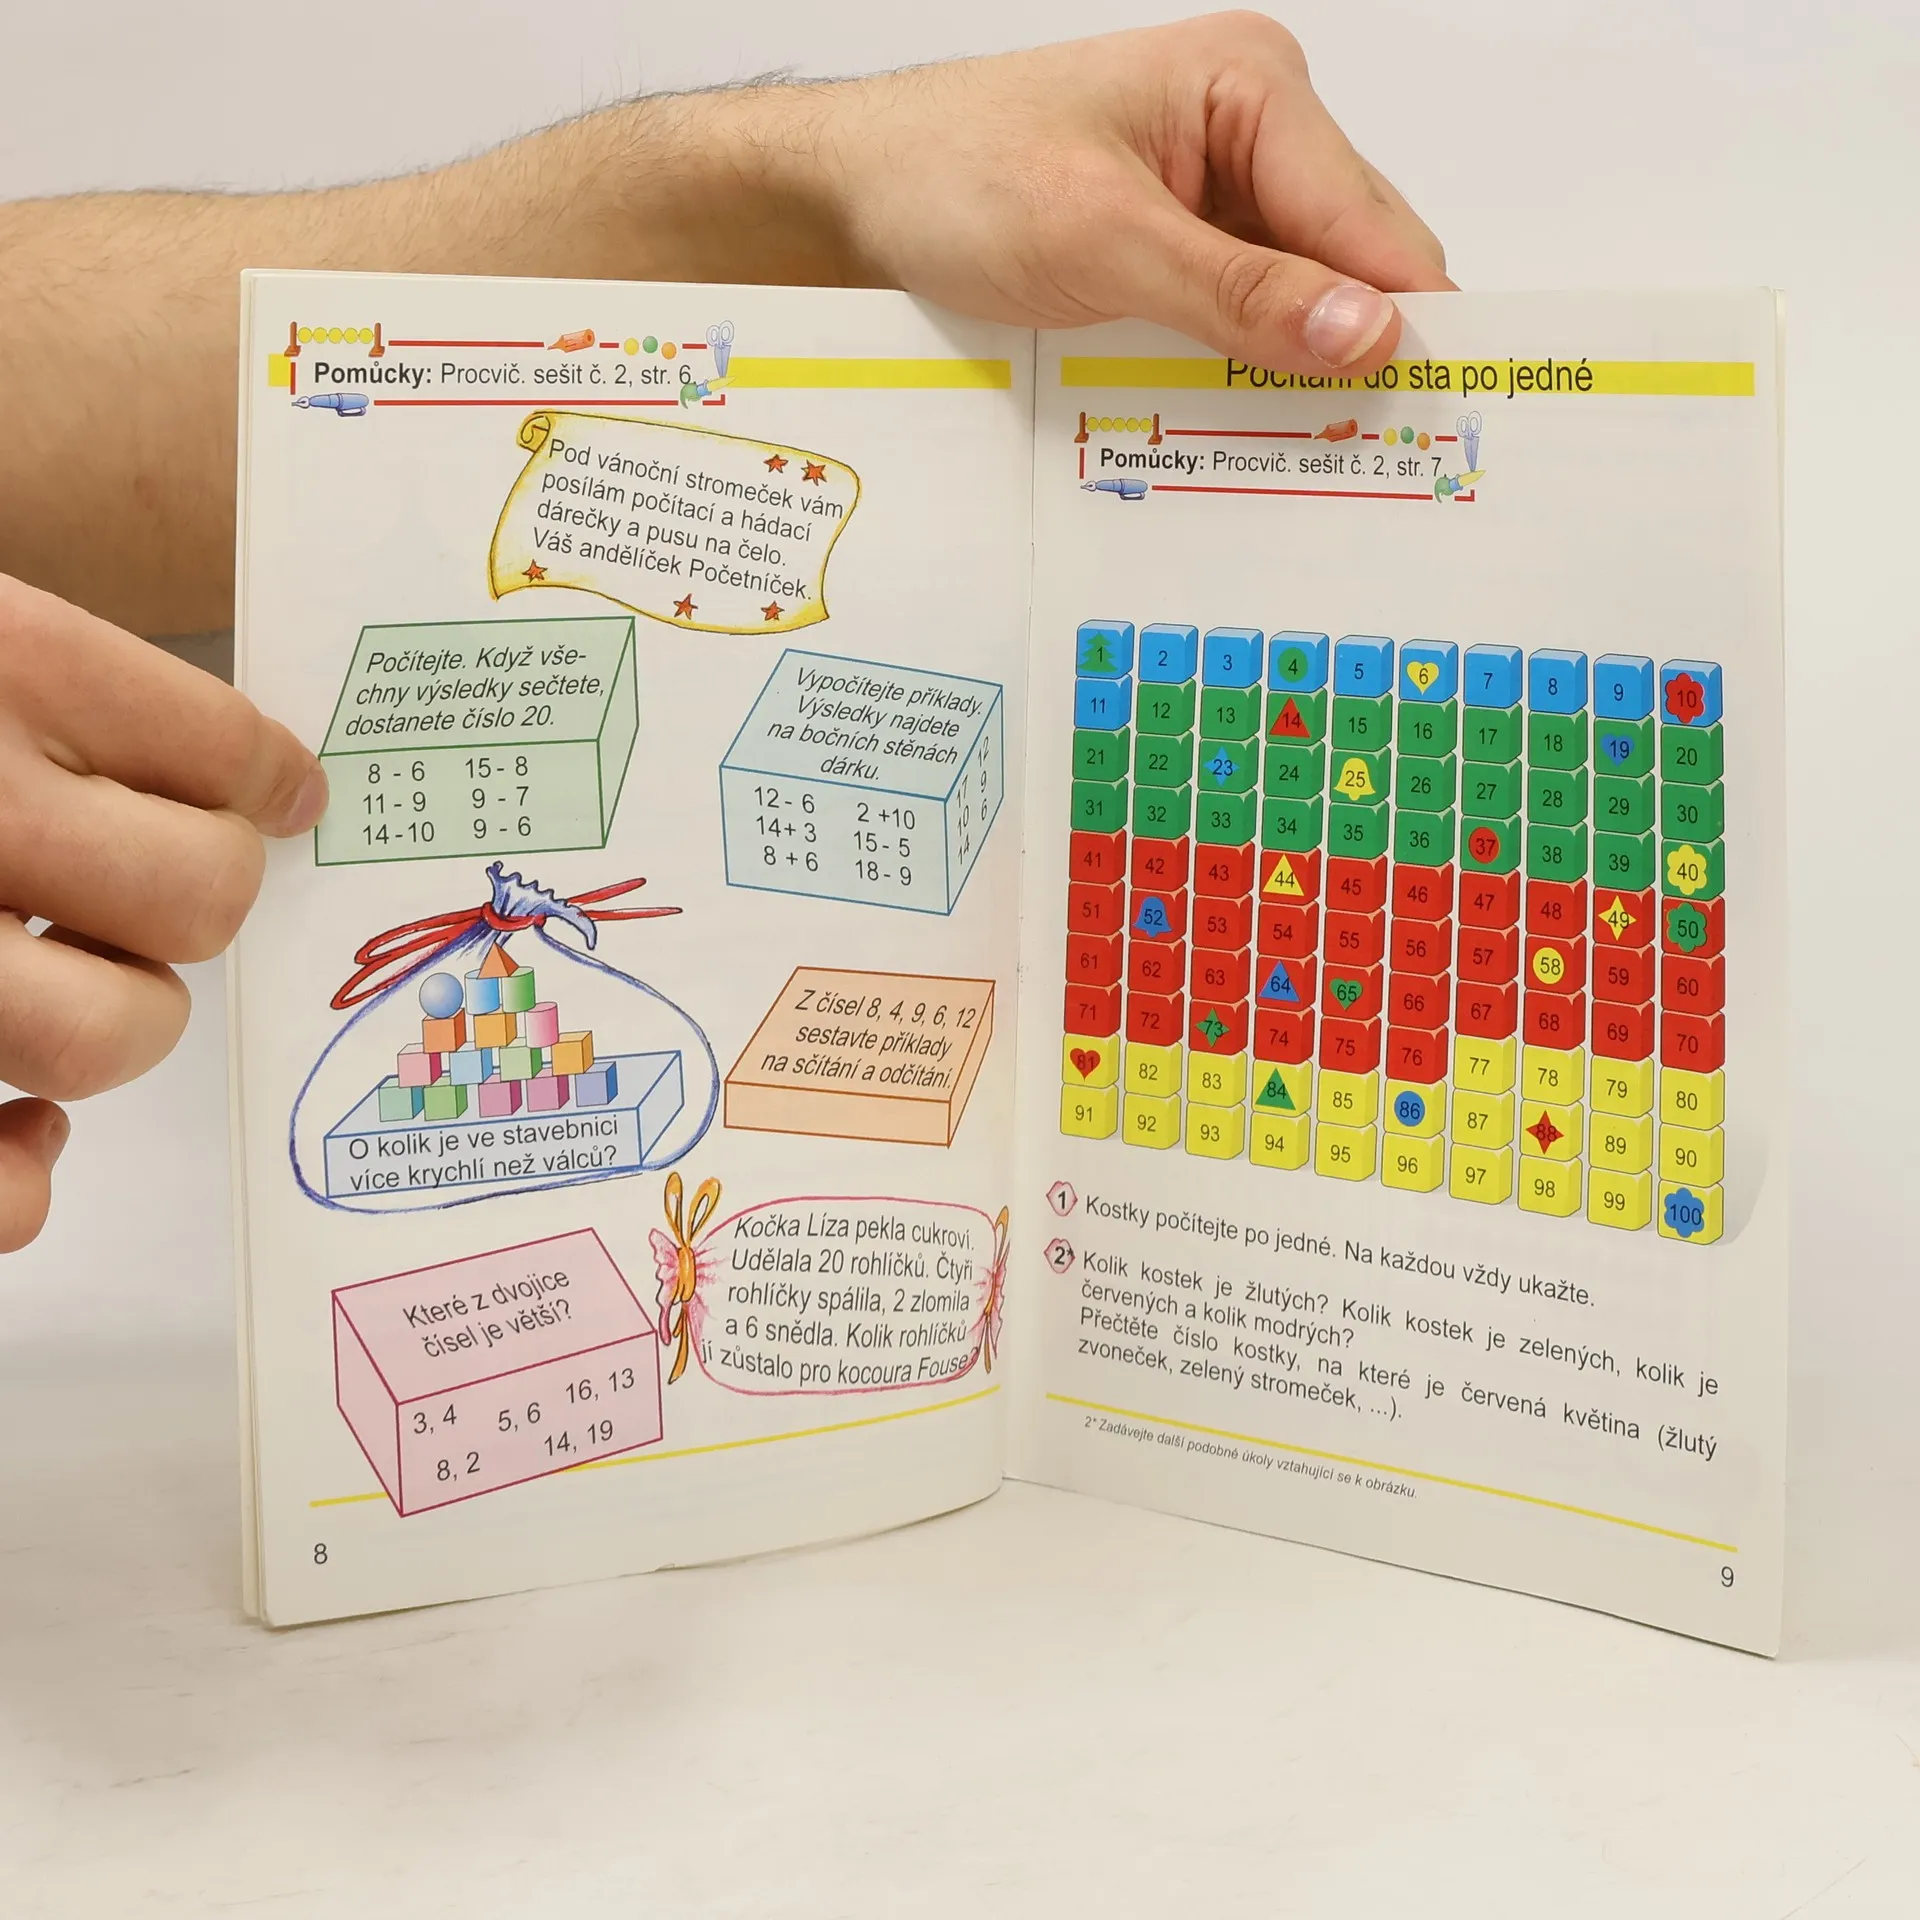 Pomůcky: Procvič. sešit č. 2, str. 6.
Pod vánoční stromeček vám
posílám počítací a hádací
dárečky a pusu na čelo.
Váš andělíček Početníček.
Počítejte. Když vše-
chny výsledky sečtete,
dostanete číslo 20.
8 - 6 15 - 8
11 - 9 9 - 7
14 - 10 9 - 6
Vypočítejte příklady.
Výsledky najdete
na bočních stěnách
dárku.
12 - 6 2 + 10
14 + 3 15 - 5
8 + 6 18 - 9
12
17 9
10 6
14
O kolik je ve stavebnici
více krychlí než válců?
Z čísel 8, 4, 9, 6, 12
sestavte příklady
na sčítání a odčítání.
Které z dvojice
čísel je větší?
3, 4 5, 6 16, 13
8, 2 14, 19
Kočka Líza pekla cukroví.
Udělala 20 rohlíčků. Čtyři
rohlíčky spálila, 2 zlomila
a 6 snědla. Kolik rohlíčků
jí zůstalo pro kocoura Fouse?
8
do sta po jedné
Pomůcky: Procvič. sešit č. 2, str. 7.
1 2 3 4 5 6 7 8 9 10
11 12 13 14 15 16 17 18 19 20
21 22 23 24 25 26 27 28 29 30
31 32 33 34 35 36 37 38 39 40
41 42 43 44 45 46 47 48 49 50
51 52 53 54 55 56 57 58 59 60
61 62 63 64 65 66 67 68 69 70
71 72 73 74 75 76 77 78 79 80
81 82 83 84 85 86 87 88 89 90
91 92 93 94 95 96 97 98 99 100
1 Kostky počítejte po jedné. Na každou vždy ukažte.
2* Kolik kostek je žlutých? Kolik kostek je zelených, kolik je
červených a kolik modrých?
Přečtěte číslo kostky, na které je červená květina (žlutý
zvoneček, zelený stromeček, ...).
2* Zadávejte další podobné úkoly vztahující se k obrázku.
9